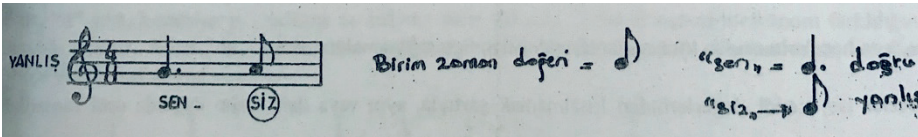 YANLIŞ
SEN - SİZ
Birim zaman değeri =
"sen" = doğru
"siz" → yanlış